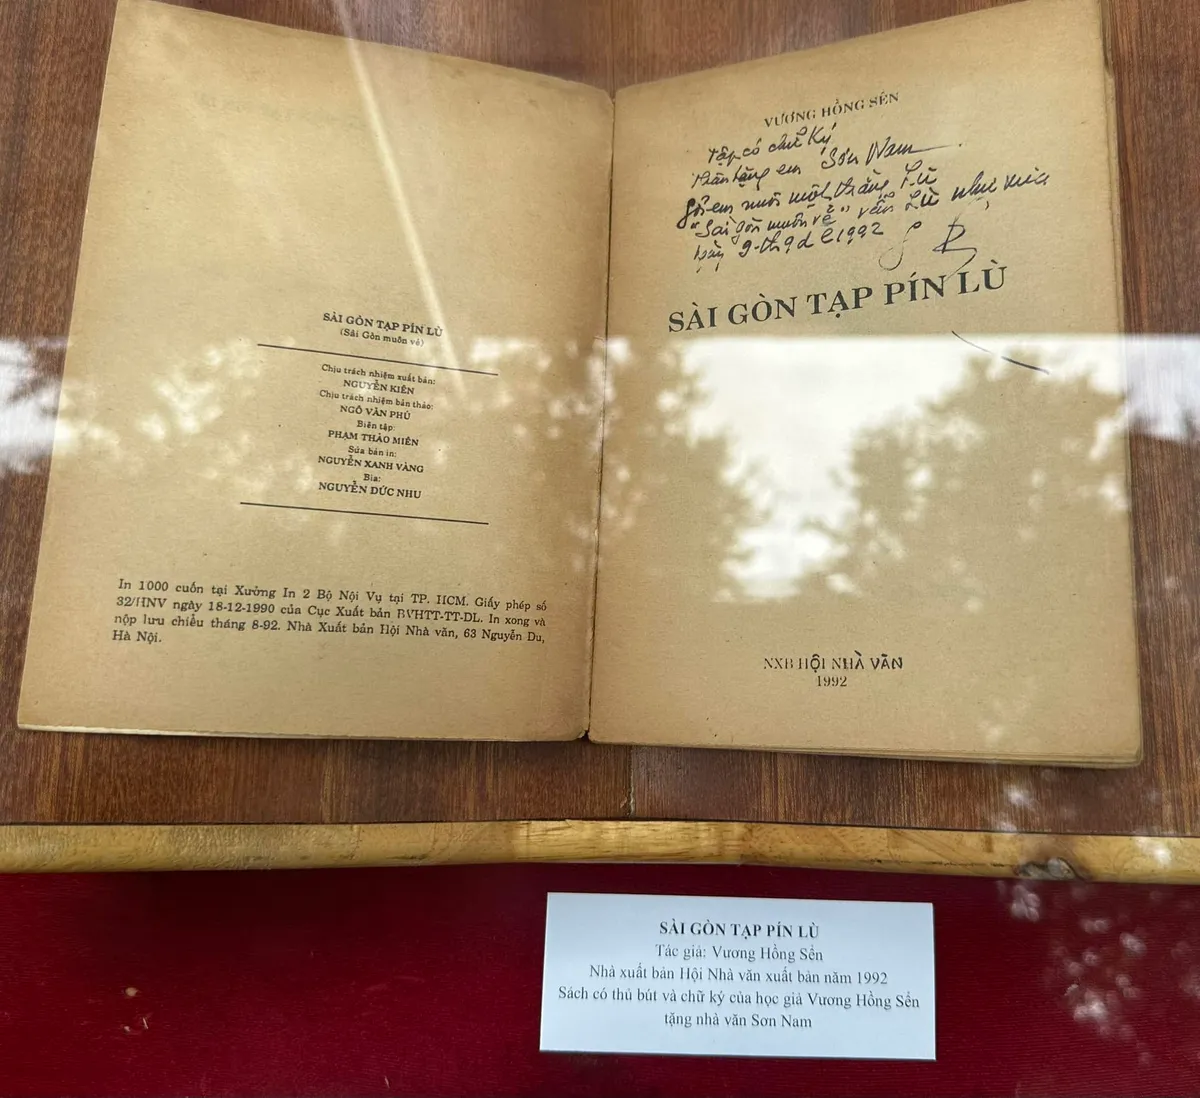 SÀI GÒN TẠP PÍN LÙ
(Sài Gòn muôn vẻ)
Chịu trách nhiệm xuất bản:
NGUYỄN KIÊN
Chịu trách nhiệm bản thảo:
NGÔ VĂN PHÚ
Biên tập:
PHẠM THẢO MIÊN
Sửa bản in:
NGUYỄN XANH VÀNG
Bìa:
NGUYỄN ĐỨC NHU
In 1000 cuốn tại Xưởng In 2 Bộ Nội Vụ tại TP. HCM. Giấy phép số
32/HNV ngày 18-12-1990 của Cục Xuất bản BVHTT-TT-DL. In xong và
nộp lưu chiểu tháng 8-92. Nhà Xuất bản Hội Nhà văn, 63 Nguyễn Du,
Hà Nội.
VƯƠNG HỒNG SỂN
Tập có chữ ký
thân tặng em Sơn Nam
một thằng
"Sài gòn muôn vẻ" vẫn Lù như xưa
ngày 9-th9dl1992
SÀI GÒN TẠP PÍN LÙ
NXB HỘI NHÀ VĂN
1992
SÀI GÒN TẠP PÍN LÙ
Tác giả: Vương Hồng Sển
Nhà xuất bản Hội Nhà văn xuất bản năm 1992
Sách có thủ bút và chữ ký của học giả Vương Hồng Sển
tặng nhà văn Sơn Nam